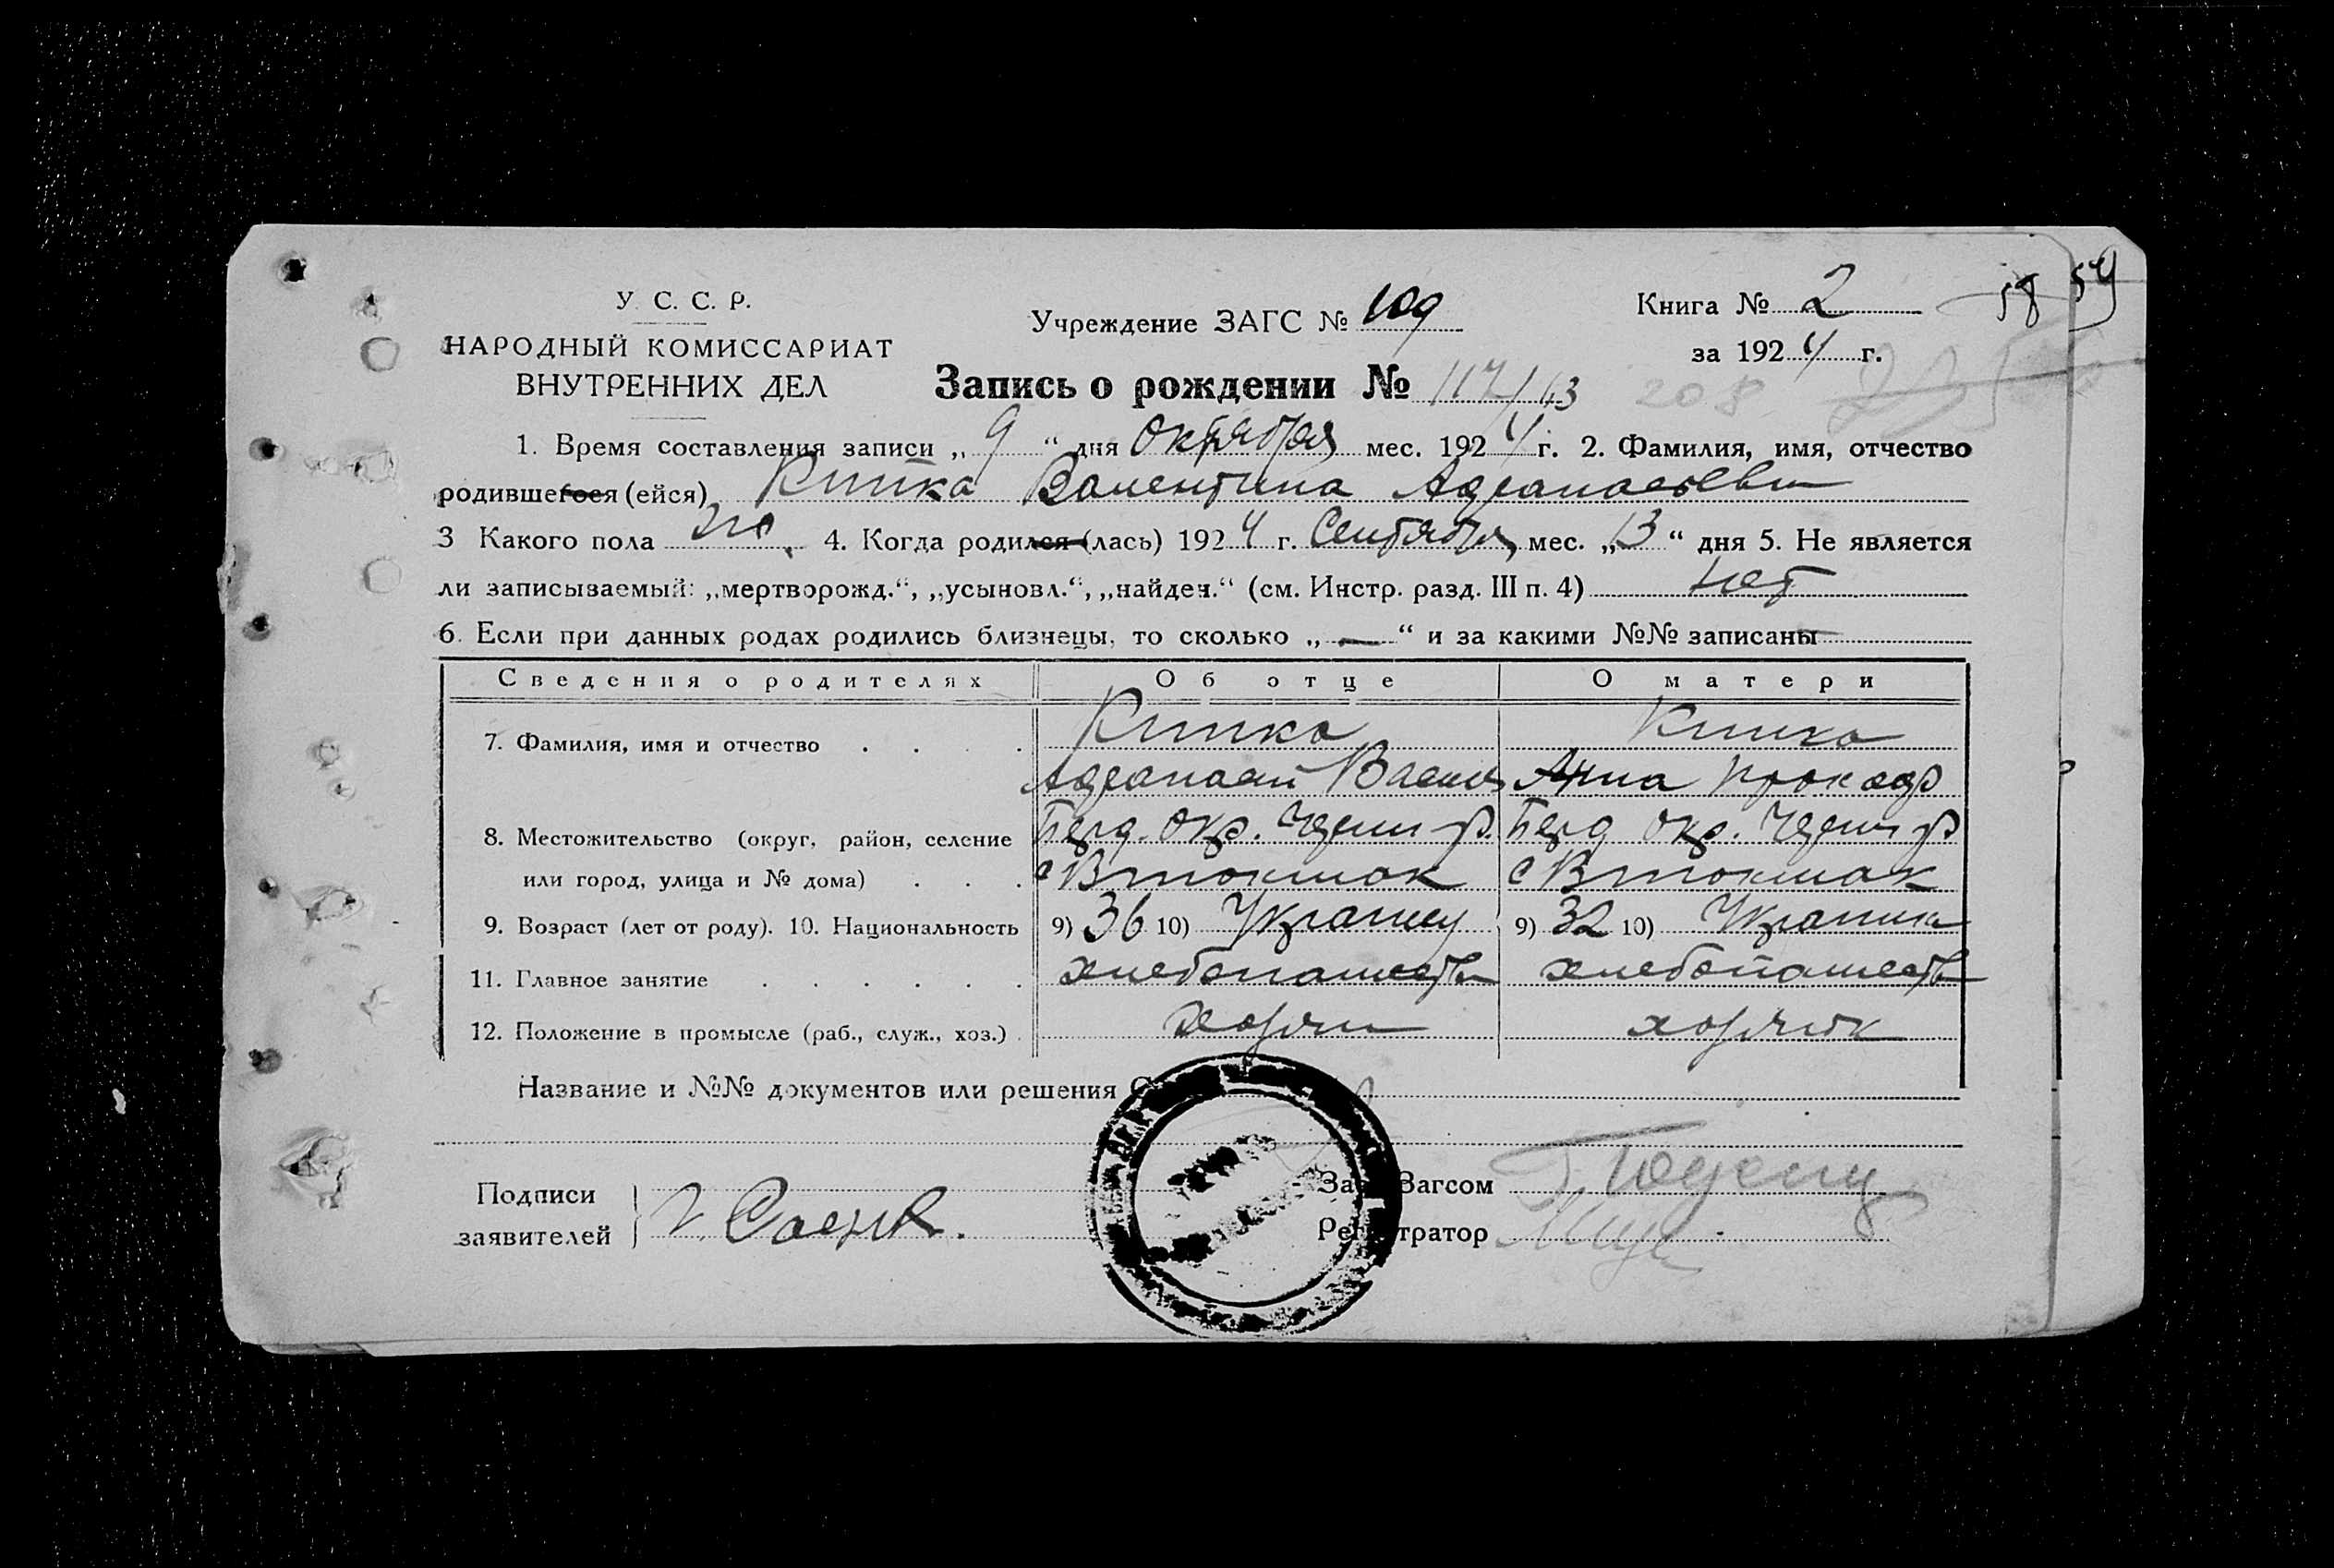 У. С. С. Р.
НАРОДНЫЙ КОМИССАРИАТ
ВНУТРЕННИХ ДЕЛ
Учреждение ЗАГС № 109
Книга № 2
за 1924 г.
58 59
Запись о рождении № 117/63 208
1. Время составления записи „ 9 “ дня Октября мес. 1924 г. 2. Фамилия, имя, отчество
родившегося (ейся) Китка Валентина
3 Какого пола 4. Когда родился (лась) 1924 г. Сентября мес. „13“ дня 5. Не является
ли записываемый: „мертворожд.“, „усыновл.“, „найден.“ (см. Инстр. разд. III п. 4) нет
6. Если при данных родах родились близнецы, то сколько „ — “ и за какими №№ записаны —
Сведения о родителях Об отце О матери
7. Фамилия, имя и отчество Китка Китка
Анна
8. Местожительство (округ, район, селение Берд. Окр. р. Берд Окр. р
или город, улица и № дома) с Втокмак с Втокмак
9. Возраст (лет от роду). 10. Национальность 9) 36 10) Украинц 9) 32 10) Украинка
11. Главное занятие хлебопашеств хлебопашеств
12. Положение в промысле (раб., служ., хоз.)
Название и №№ документов или решения
Подписи
заявителей
Зав. Загсом
Регистратор